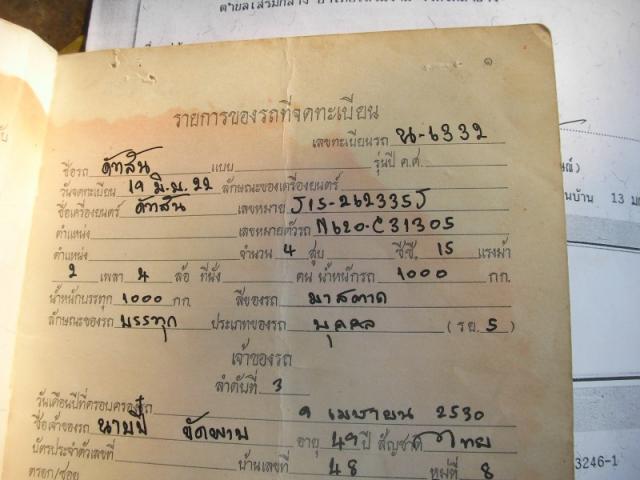 ๑
รายการของรถที่จดทะเบียน
เลขทะเบียนรถ น-6332
ชื่อรถ ดัทสัน แบบ รุ่นปี ค.ศ.
วันจดทะเบียน 19 มิ.ย. 22 ลักษณะของเครื่องยนตร์
ชื่อเครื่องยนตร์ ดัทสัน เลขหมาย J15-262335J
ตำแหน่ง เลขหมายตัวรถ N620-C31305
ตำแหน่ง จำนวน 4 สูบ ซีซี. 15 แรงม้า
2 เพลา 4 ล้อ ที่นั่ง คน น้ำหนักรถ 1000 กก.
น้ำหนักบรรทุก 1000 กก. สีของรถ มาสตาด
ลักษณะของรถ บรรทุก ประเภทของรถ บุคคล (รย. 5)
เจ้าของรถ
ลำดับที่ 3
วันเดือนปีที่ครอบครองรถ 9 เมษายน 2530
ชื่อเจ้าของรถ อายุ 49 ปี สัญชาติ ไทย
บัตรประจำตัวเลขที่ บ้านเลขที่ 48 หมู่ที่ 8
ตรอก/ซอย
นบ้าน 13
3246-1